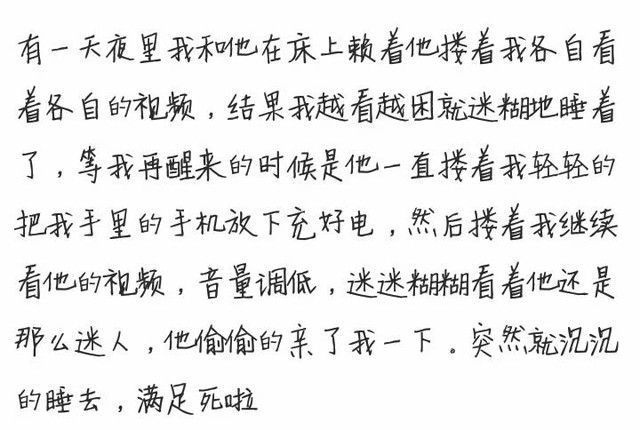 有一天夜里我和他在床上赖着他搂着我各自看
着各自的视频，结果我越看越困就迷糊地睡着
了，等我再醒来的时候是他一直搂着我轻轻的
把我手里的手机放下充好电，然后搂着我继续
看他的视频，音量调低，迷迷糊糊看着他还是
那么迷人，他偷偷的亲了我一下。突然就沉沉
的睡去，满足死啦